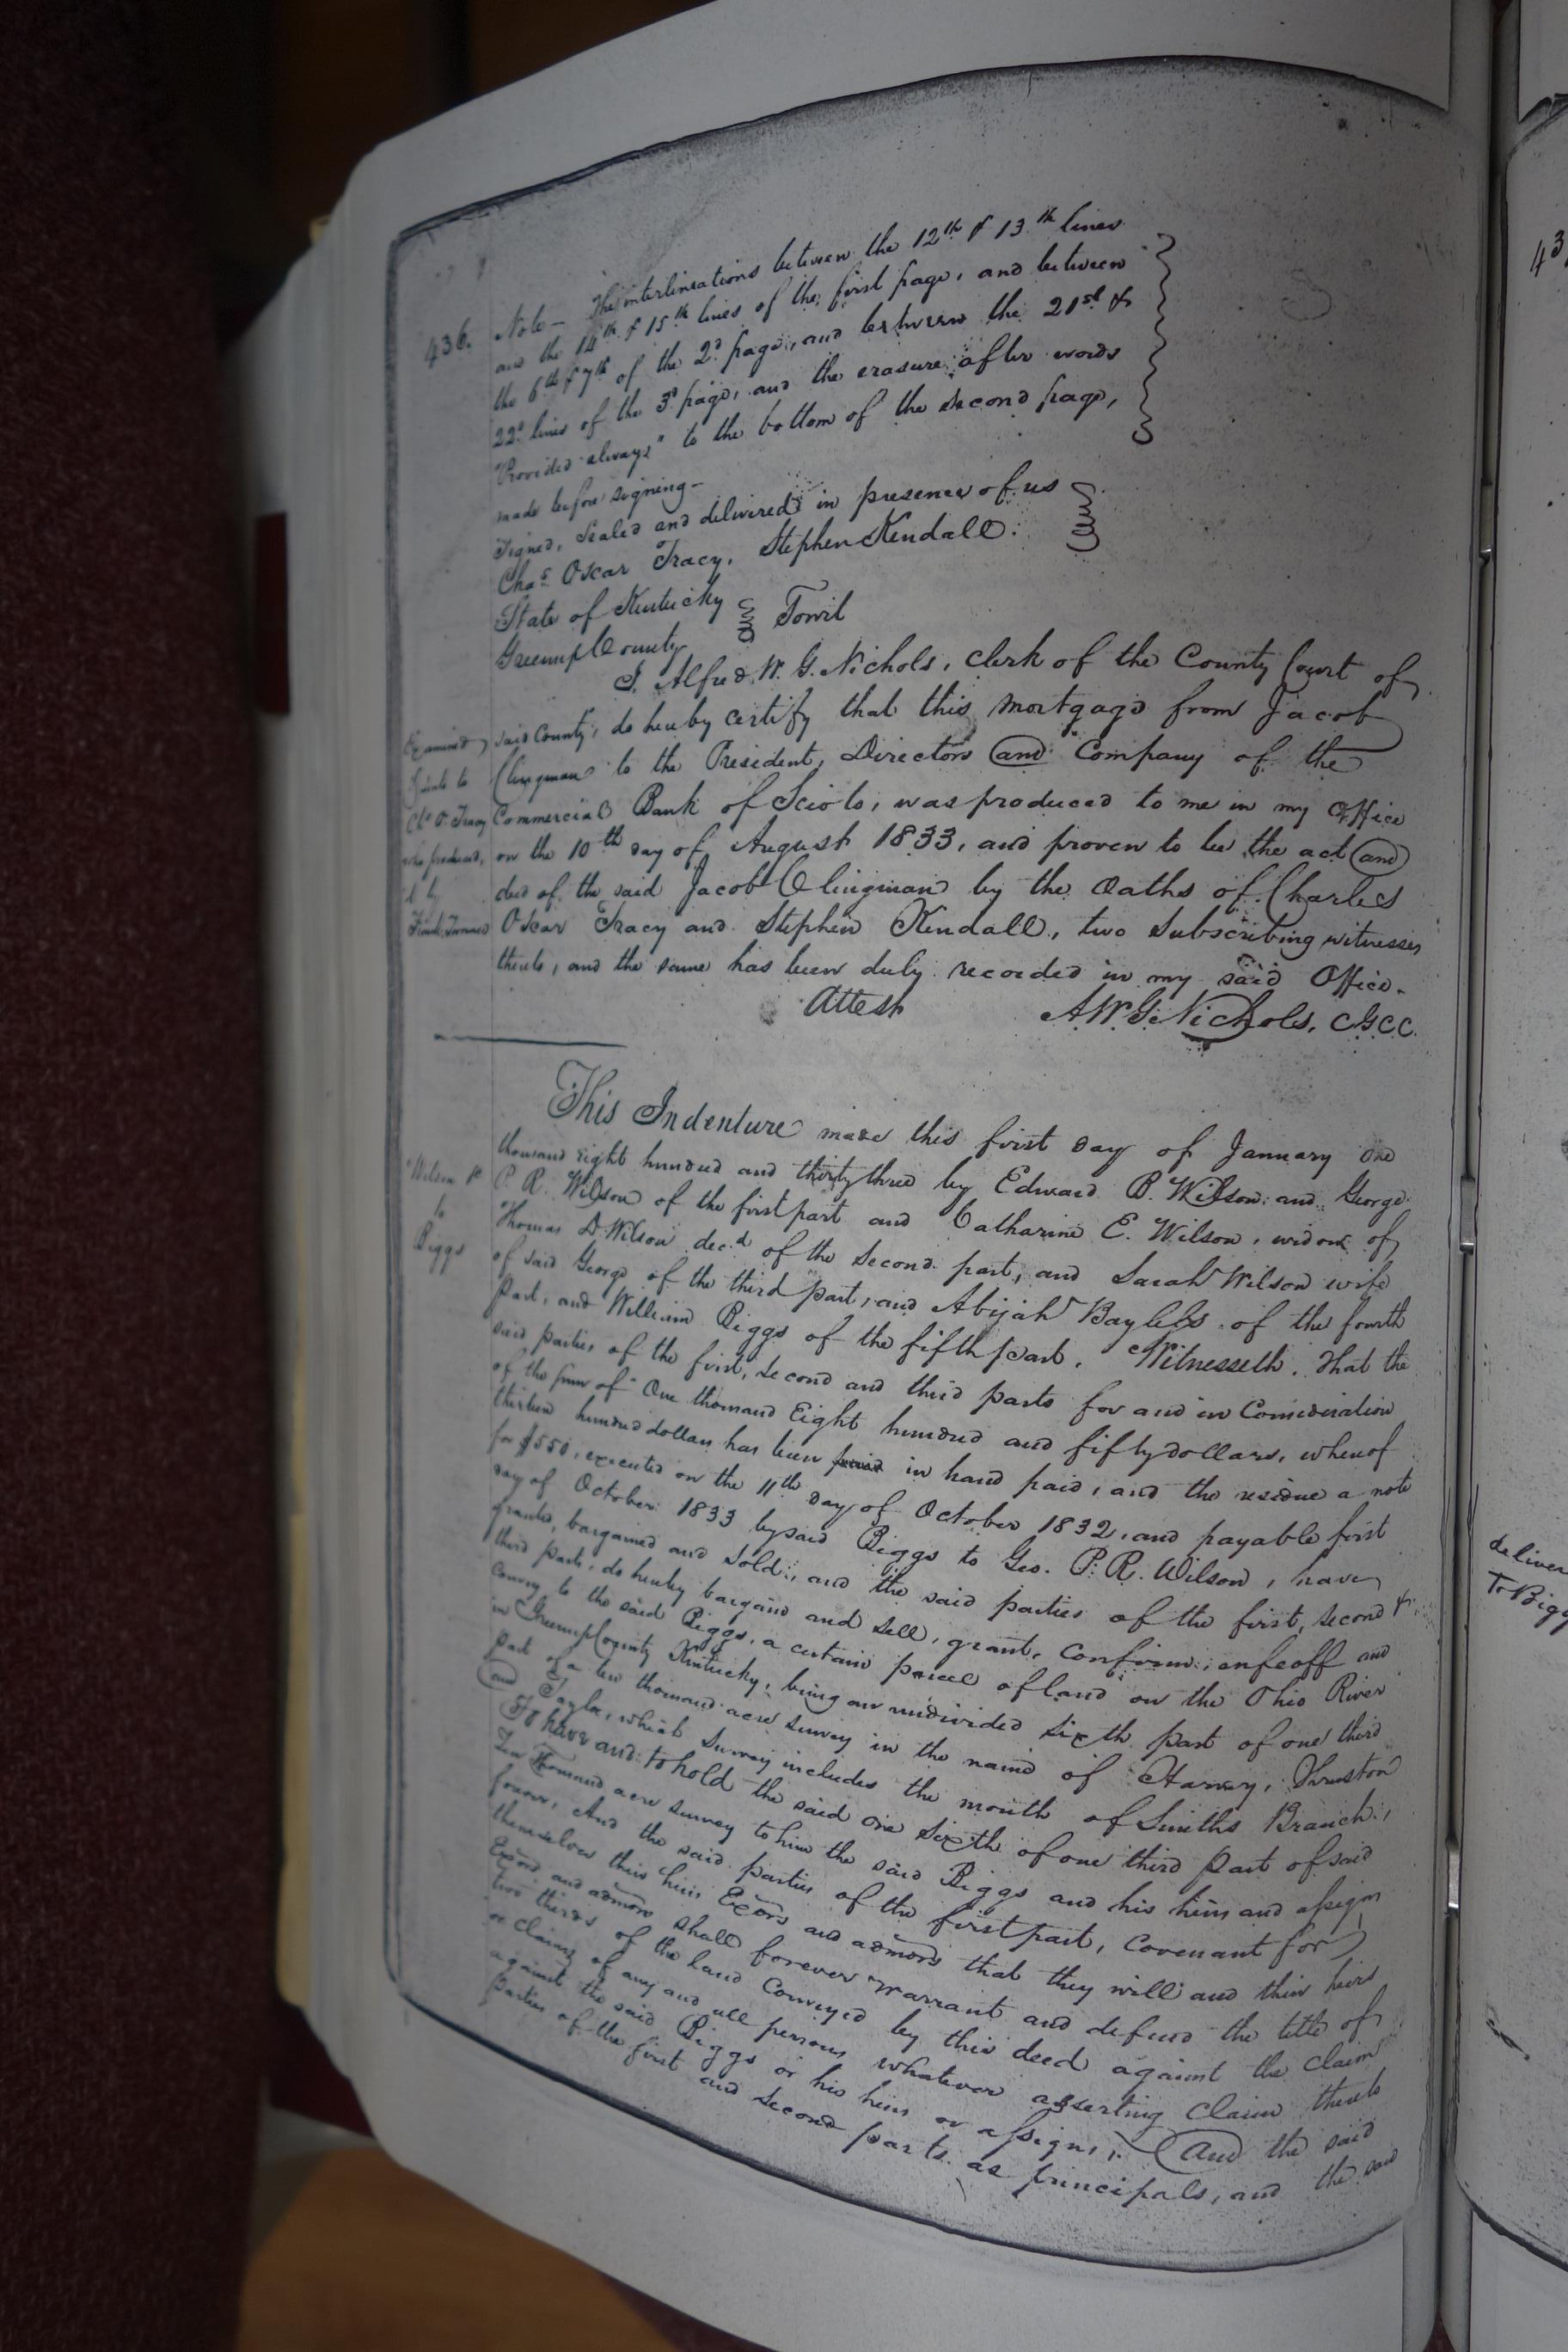 436.
Note — The interlineations between the 12th & 13th lines
and the 14th & 15th lines of the first page, and between
the 6th & 7th of the 2d page, and between the 21st &
22d lines of the 3d page, and the erasure after words
"Provided always" to the bottom of the second page,
made before signing —
Signed, Sealed and delivered in presence of us
Chas Oscar Tracy, Stephen Kendall.
State of Kentucky
Greenup County
Towit
I, Alfred W. G. Nichols, Clerk of the County Court of
said County, do hereby certify that this mortgage from Jacob
Clingman to the President, Directors and Company of the
Commercial Bank of Scioto, was produced to me in my Office
on the 10th day of August 1833, and proven to be the act and
deed of the said Jacob Clingman by the Oaths of Charles
Oscar Tracy and Stephen Kendall, two Subscribing witnesses
thereto, and the same has been duly recorded in my said Office.
Attest A W G. Nichols, C G C C.
Examined
to
Chs O. Tracy
who produced
it by
Wilson &c
to
Biggs
This Indenture made this first day of January one
thousand eight hundred and thirty three by Edward B. Wilson and George
P. R. Wilson of the first part and Catharine E. Wilson, widow of
Thomas D Wilson decd of the second part, and Sarah Wilson wife
of said George of the third part, and Abijah Bayless of the fourth
part, and William Biggs of the fifth part. Witnesseth. That the
said parties of the first, second and third parts for and in Consideration
of the sum of One thousand Eight hundred and fifty dollars, whereof
thirteen hundred dollars has been paid in hand paid, and the residue a note
for $550, executed on the 11th day of October 1832, and payable first
day of October 1833 by said Biggs to Geo. P. R. Wilson, have
granted, bargained and sold, and the said parties of the first, second &
third parts, do hereby bargain and sell, grant, confirm, enfeoff and
convey to the said Biggs, a certain parcel of land on the Ohio River
in Greenup County Kentucky, being an undivided sixth part of one third
part of a ten thousand acre survey in the name of Harvey, Thruston
and Taylor, which Survey includes the mouth of Smiths Branch,
To have and to hold the said one sixth of one third part of said
Ten Thousand acre survey to him the said Biggs and his heirs and assigns
forever, And the said parties of the first part, covenant for
themselves their heirs Exors and admors that they will and their heirs
Exors and admors shall forever warrant and defend the title of
two thirds of the land conveyed by this deed against the claim
or claims of any and all persons whatever asserting claim thereto
against the said Biggs or his heirs or assigns, And the said
parties of the first and second parts as principals, and the said
43
deliver
To Bigg